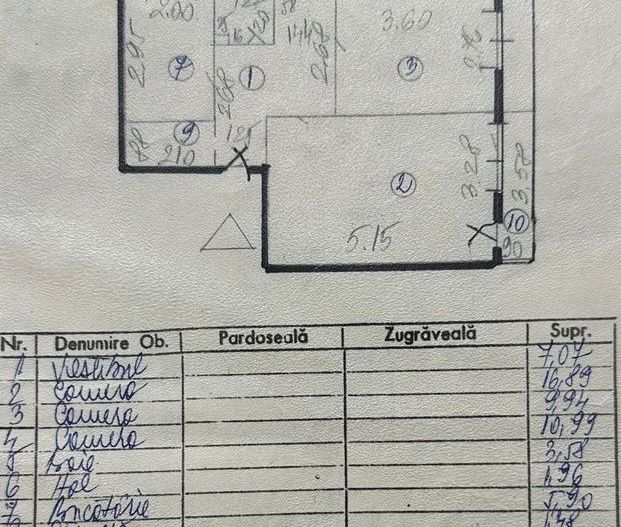 2.00
3.60
2.95
7
1
2.68
3
88
9
210
2
3.28
3.58
5.15
10
90
Nr. Denumire Ob. Pardoseală Zugrăveală Supr.
1 Vestibul 7,07
2 Camera 16,89
3 Camera 9,94
4 Camera 10,99
5 Baie 3,58
6 Hol 1,96
7 Bucătărie 5,90